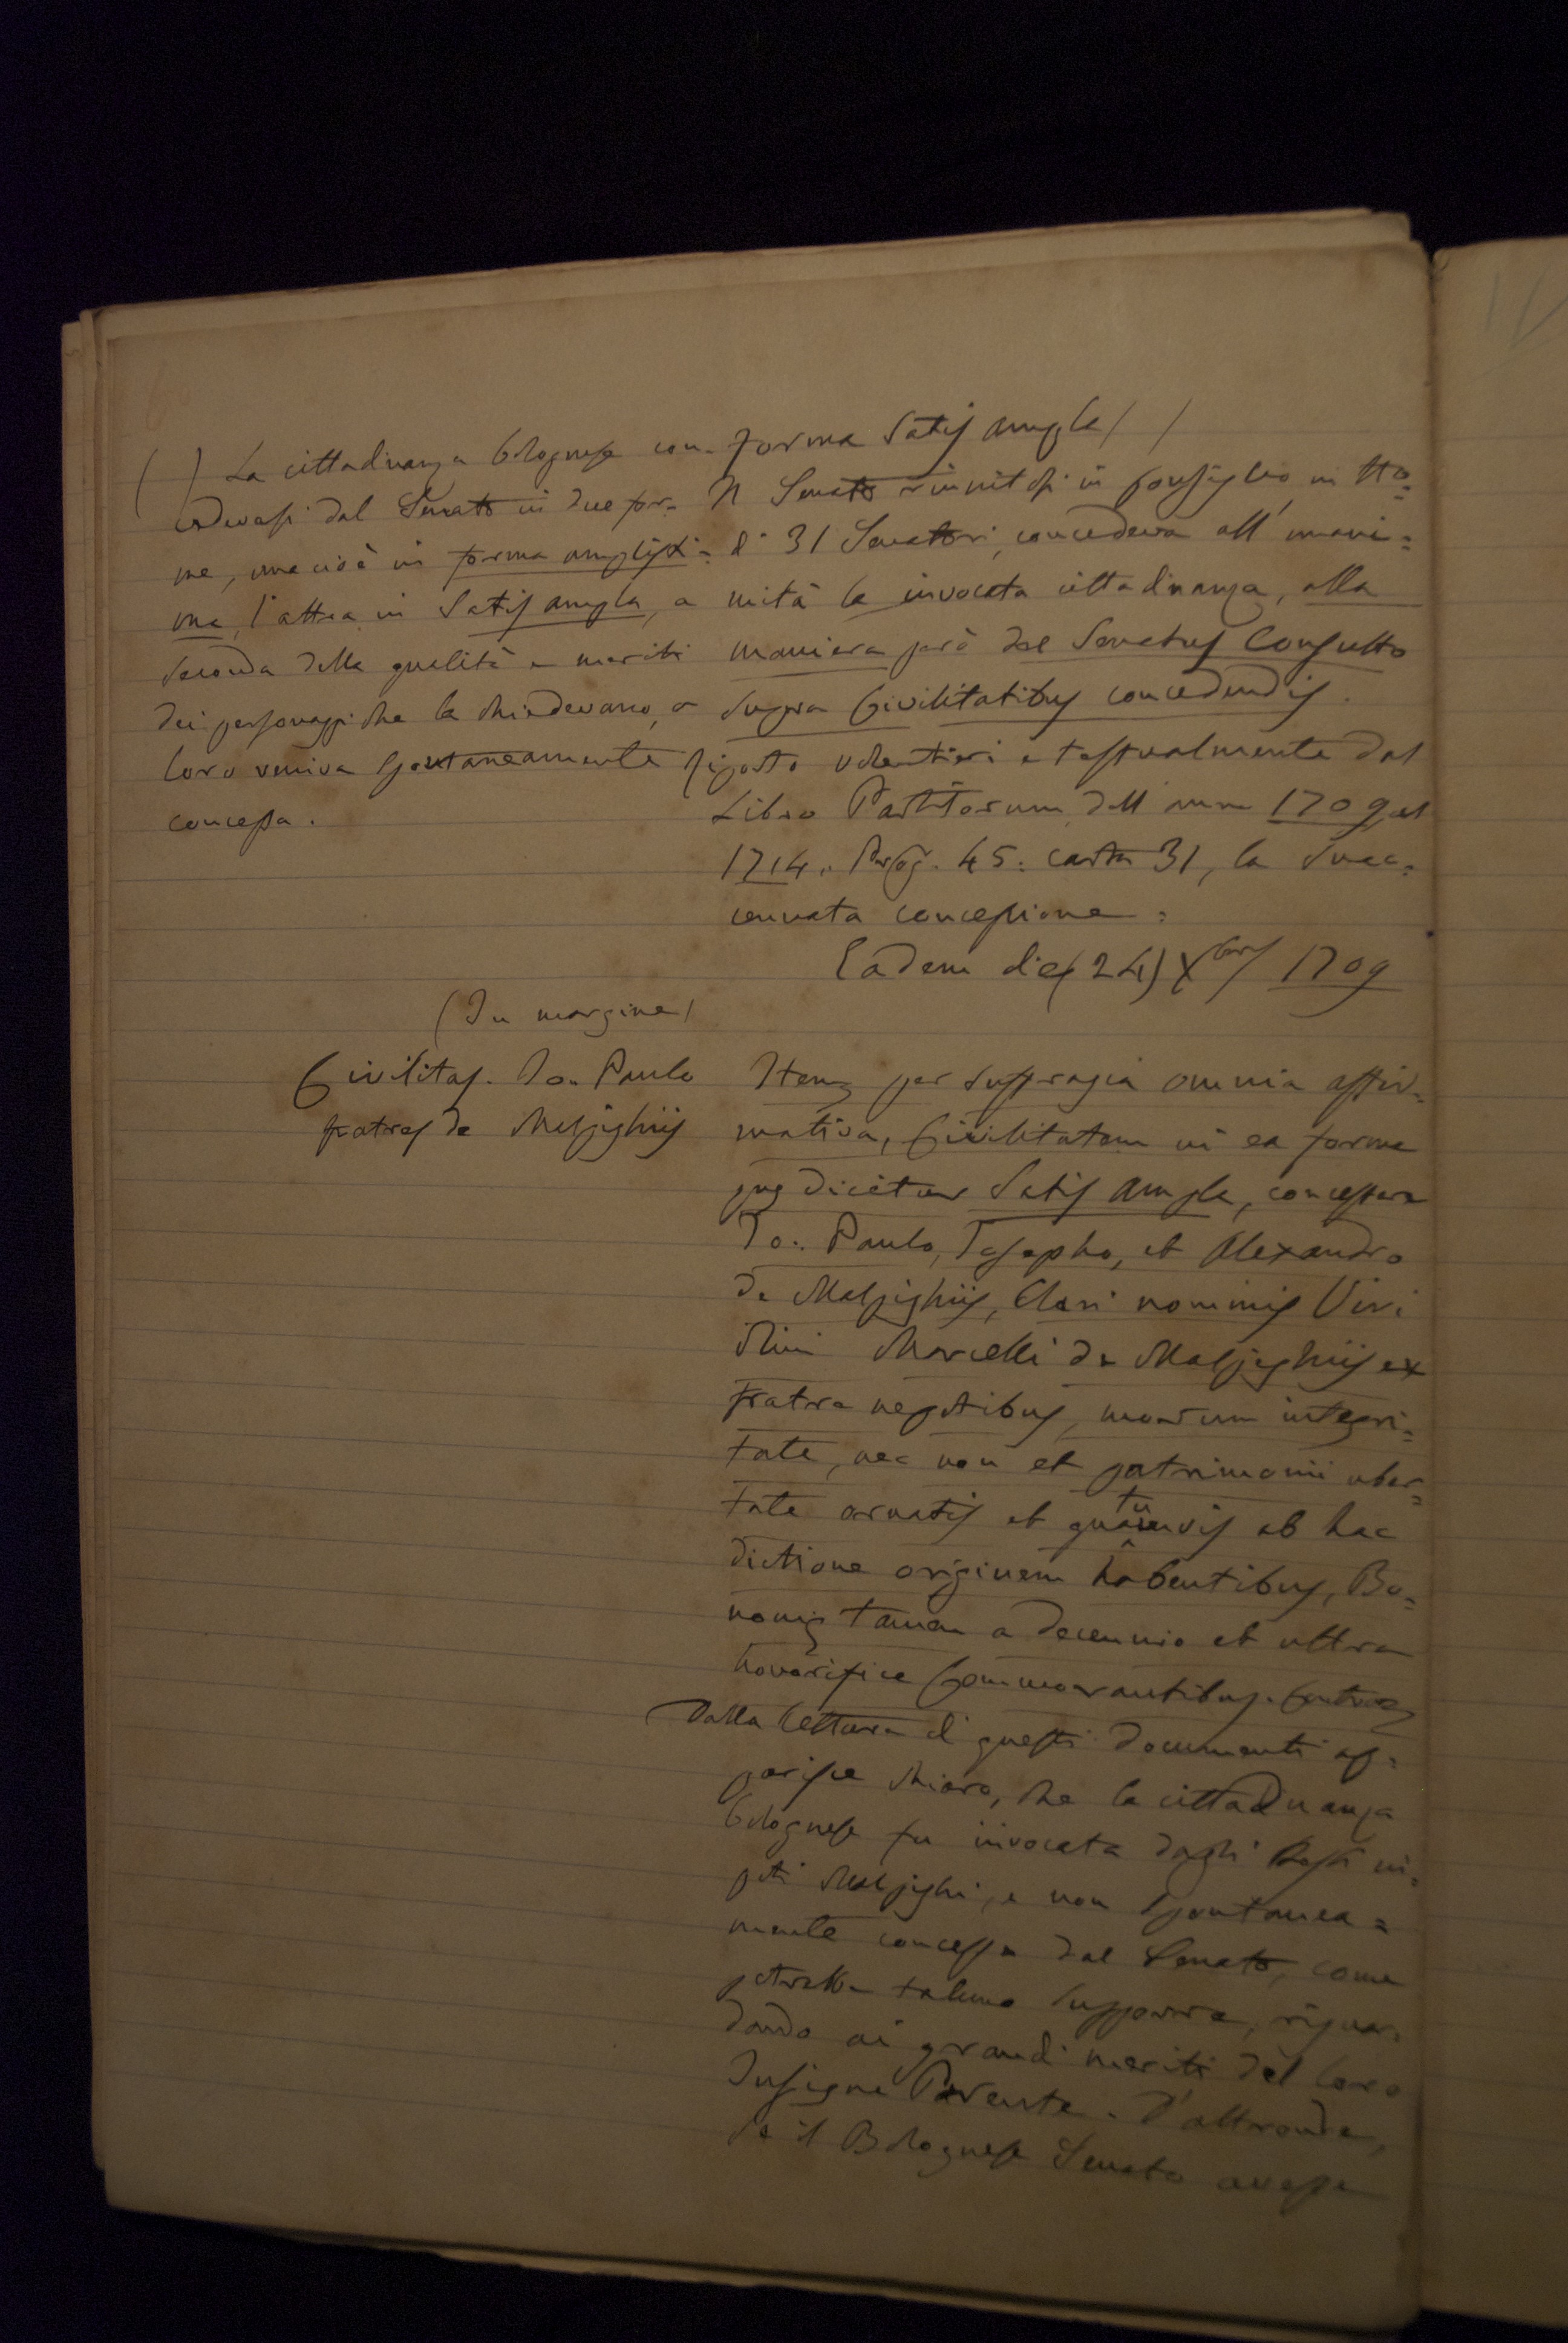 ( ) La cittadinanza bolognese con-
cedevasi dal Senato in due for-
me, una cioè in forma amplissi=
ma, l'altra in Satis ampla, a
seconda della qualità e meriti
dei personaggi che la chiedevano, o
loro veniva spontaneamente
concessa.
forma Satis ampla ( )
Il Senato riunitosi in Consiglio in N.o
di 31 Senatori, concedeva all'unani=
mità la invocata cittadinanza, alla
maniera però del Senatus Consulto
supra Civilitatibus concedendis.
Riporto volentieri e testualmente dal
Libro Partitorum dell'anno 1709 al
1714. 45: carta 31, la suac=
cennata concessione:
Eadem die (24) Xbris 1709
(In margine)
Civilitas. Jo. Paulo
fratres de Malpighiis
Item per suffragia omnia affir=
mativa, Civilitatem in ea forma
quę dicitur Satis Ampla, concessere
Jo: Paulo, Josepho, et Alexandro
de Malpighiis, Clari nominis Viri
Marcelli de Malpighiis ex
fratre nepotibus, morum integri=
tate, nec non et patrimonii uber=
tate ornatis et quamvis ab hac
dictione originem habentibus, Bo=
nonię tamen a decennio et ultra
honorifice Commorantibus.
Dalla lettura di questi documenti ap=
parisce chiaro, che la cittadinanza
bolognese fu invocata dagli stessi ni=
poti Malpighi, e non spontanea=
mente concessa dal Senato, come
potrebbe taluno supporre, riguar=
dando ai grandi meriti del loro
Insigne Parente. D'altronde,
se il Bolognese Senato avesse